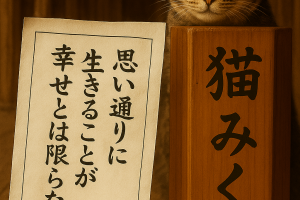 思い通りに
生きることが
幸せとは限らな
猫みく